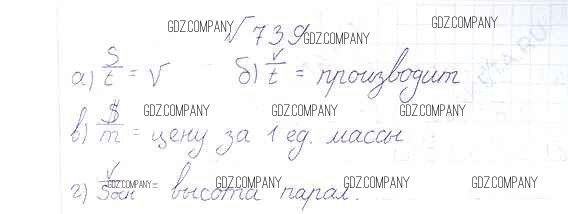 GDZ.COMPANY √ 739 GDZ.COMPANY GDZ.COMPANY
а) S/t = V б) V/t = производит
в) $/m = цену за 1 ед. массы
GDZ.COMPANY GDZ.COMPANY GDZ.COMPANY
г) V/Sосн = высота парал.
GDZ.COMPANY GDZ.COMPANY GDZ.COMPANY GDZ.COMPANY